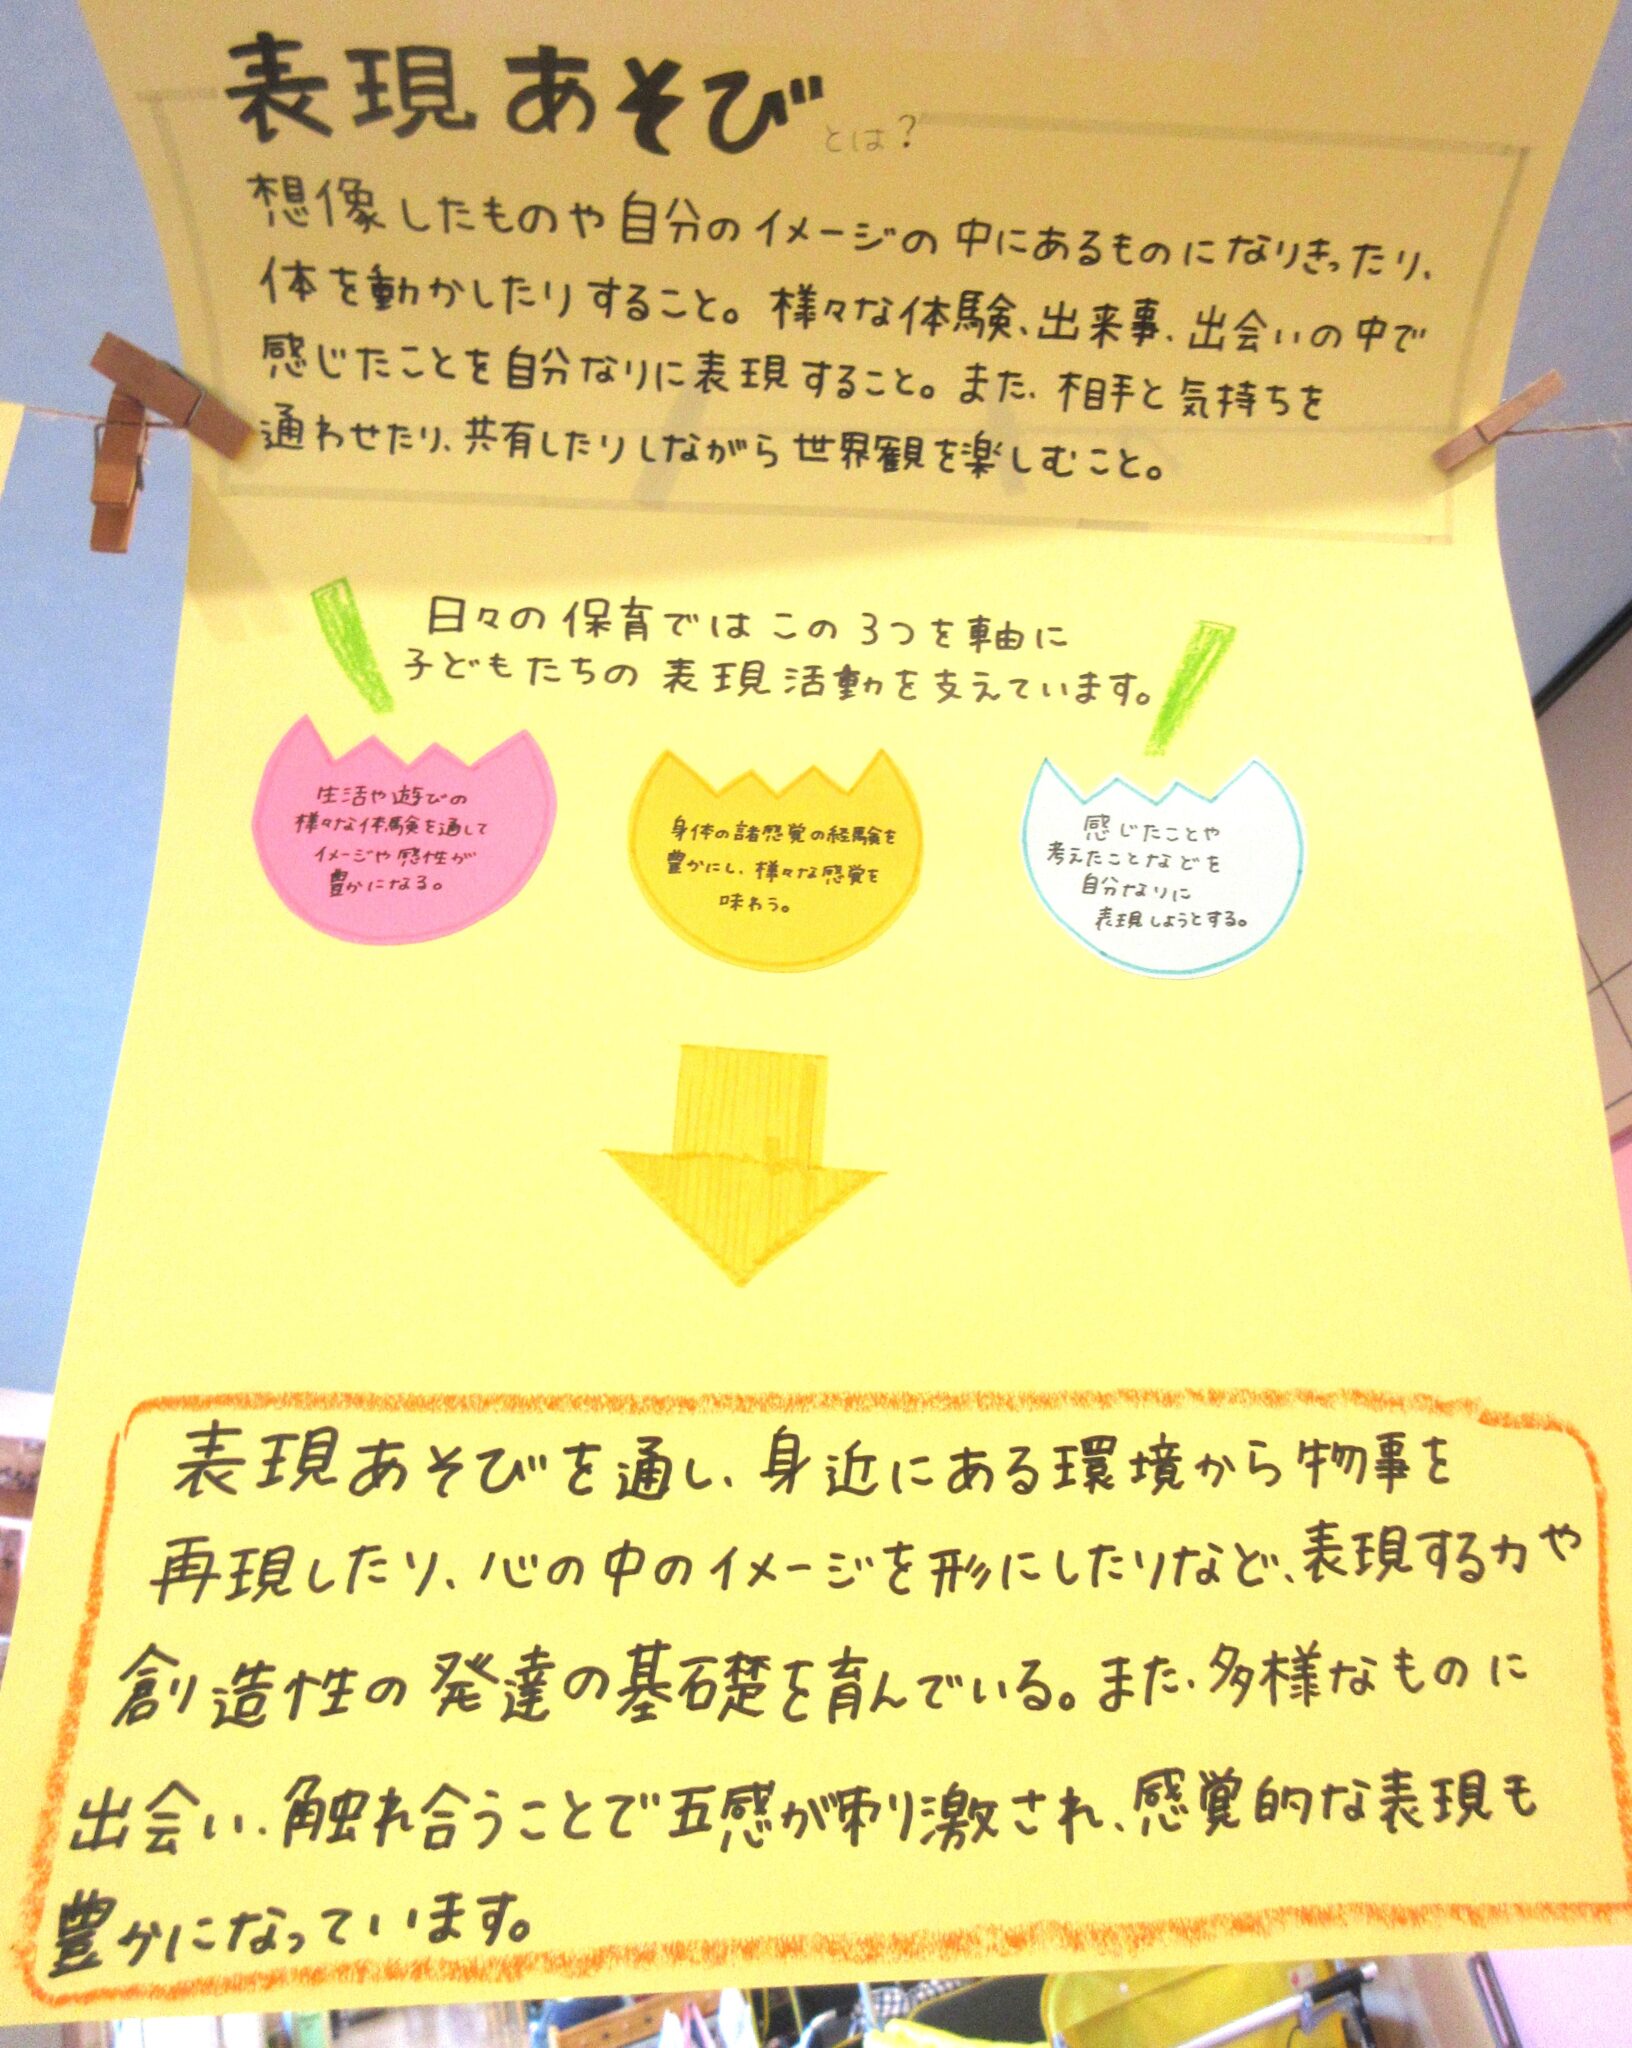 表現あそびとは？
想像したものや自分のイメージの中にあるものになりきったり、
体を動かしたりすること。様々な体験、出来事、出会いの中で
感じたことを自分なりに表現すること。また、相手と気持ちを
通わせたり、共有したりしながら世界観を楽しむこと。
日々の保育ではこの3つを軸に
子どもたちの表現活動を支えています。
生活や遊びの
様々な体験を通して
イメージや感性が
豊かになる。
身体の諸感覚の経験を
豊かにし、様々な感覚を
味わう。
感じたことや
考えたことなどを
自分なりに
表現しようとする。
表現あそびを通し、身近にある環境から物事を
再現したり、心の中のイメージを形にしたりなど、表現する力や
創造性の発達の基礎を育んでいる。また、多様なものに
出会い、触れ合うことで五感が刺激され、感覚的な表現も
豊かになっています。